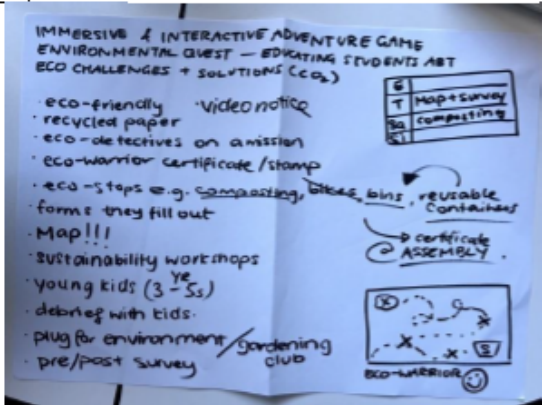 IMMERSIVE & INTERACTIVE ADVENTURE GAME
ENVIRONMENTAL QUEST — EDUCATING STUDENTS ABT
ECO CHALLENGES + SOLUTIONS (CO2)
· eco-friendly · video notice
· recycled paper
· eco-detectives on a mission
· eco-warrior certificate/stamp
· eco-stops e.g. composting, bikes, bins, reusable containers
· forms they fill out
· Map!!!
· sustainability workshops
· young kids (3-5s) ye
· debrief with kids.
· plug for environment/gardening club
· pre/post survey
6
T Map + survey
composting
→ certificate
@ ASSEMBLY.
X
X
X
X
S
ECO-WARRIOR